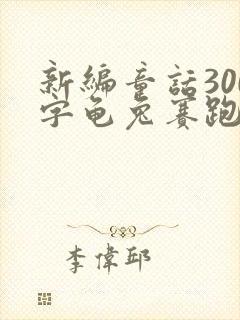 新編童話300
字龟兔賽跑
李偉邱